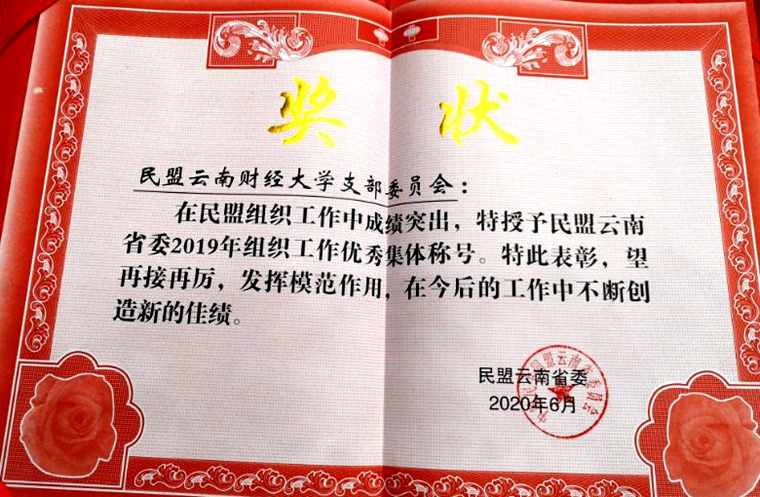 奖状
民盟云南财经大学支部委员会：
在民盟组织工作中成绩突出，特授予民盟云南
省委2019年组织工作优秀集体称号。特此表彰，望
再接再厉，发挥模范作用，在今后的工作中不断创
造新的佳绩。
民盟云南省委
2020年6月